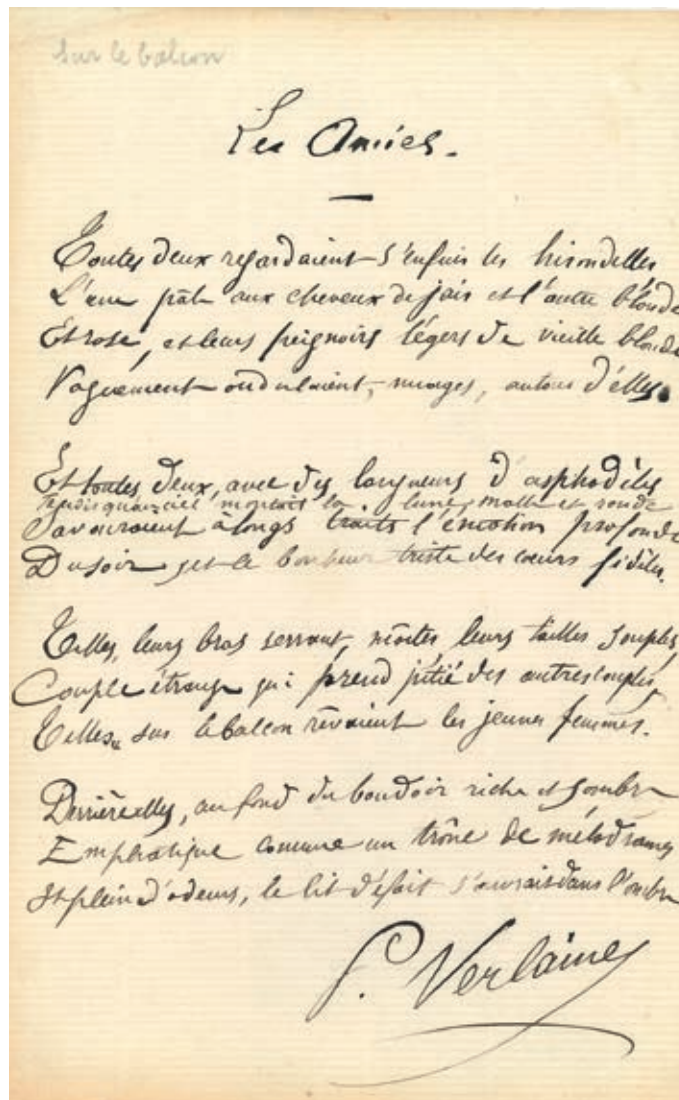 Sur le balcon
Les Amies.
Toutes deux regardaient s'enfuir les hirondelles
L'une pâle aux cheveux de jais et l'autre blonde
Et rose, et leurs peignoirs légers de vieille blonde
Vaguement ondulaient, nuages, autour d'elles.
Et toutes deux, avec des langueurs d'asphodèles
Tandis qu'au ciel montait la lune molle et ronde
Savouraient à longs traits l'émotion profonde
Du soir, et le bonheur triste des cœurs fidèles.
Telles, leurs bras serrant, moites, leurs tailles souples,
Couple étrange qui prend pitié des autres couples,
Telles, sur le balcon rêvaient les jeunes femmes.
Derrière elles, au fond du boudoir riche et sombre
Emphatique comme un trône de mélodrames
Et plein d'odeurs, le lit défait s'ouvrait dans l'ombre
P. Verlaine